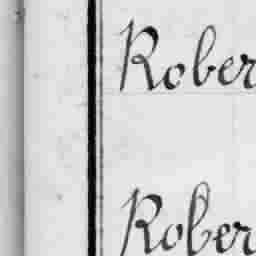 Rober
Rober